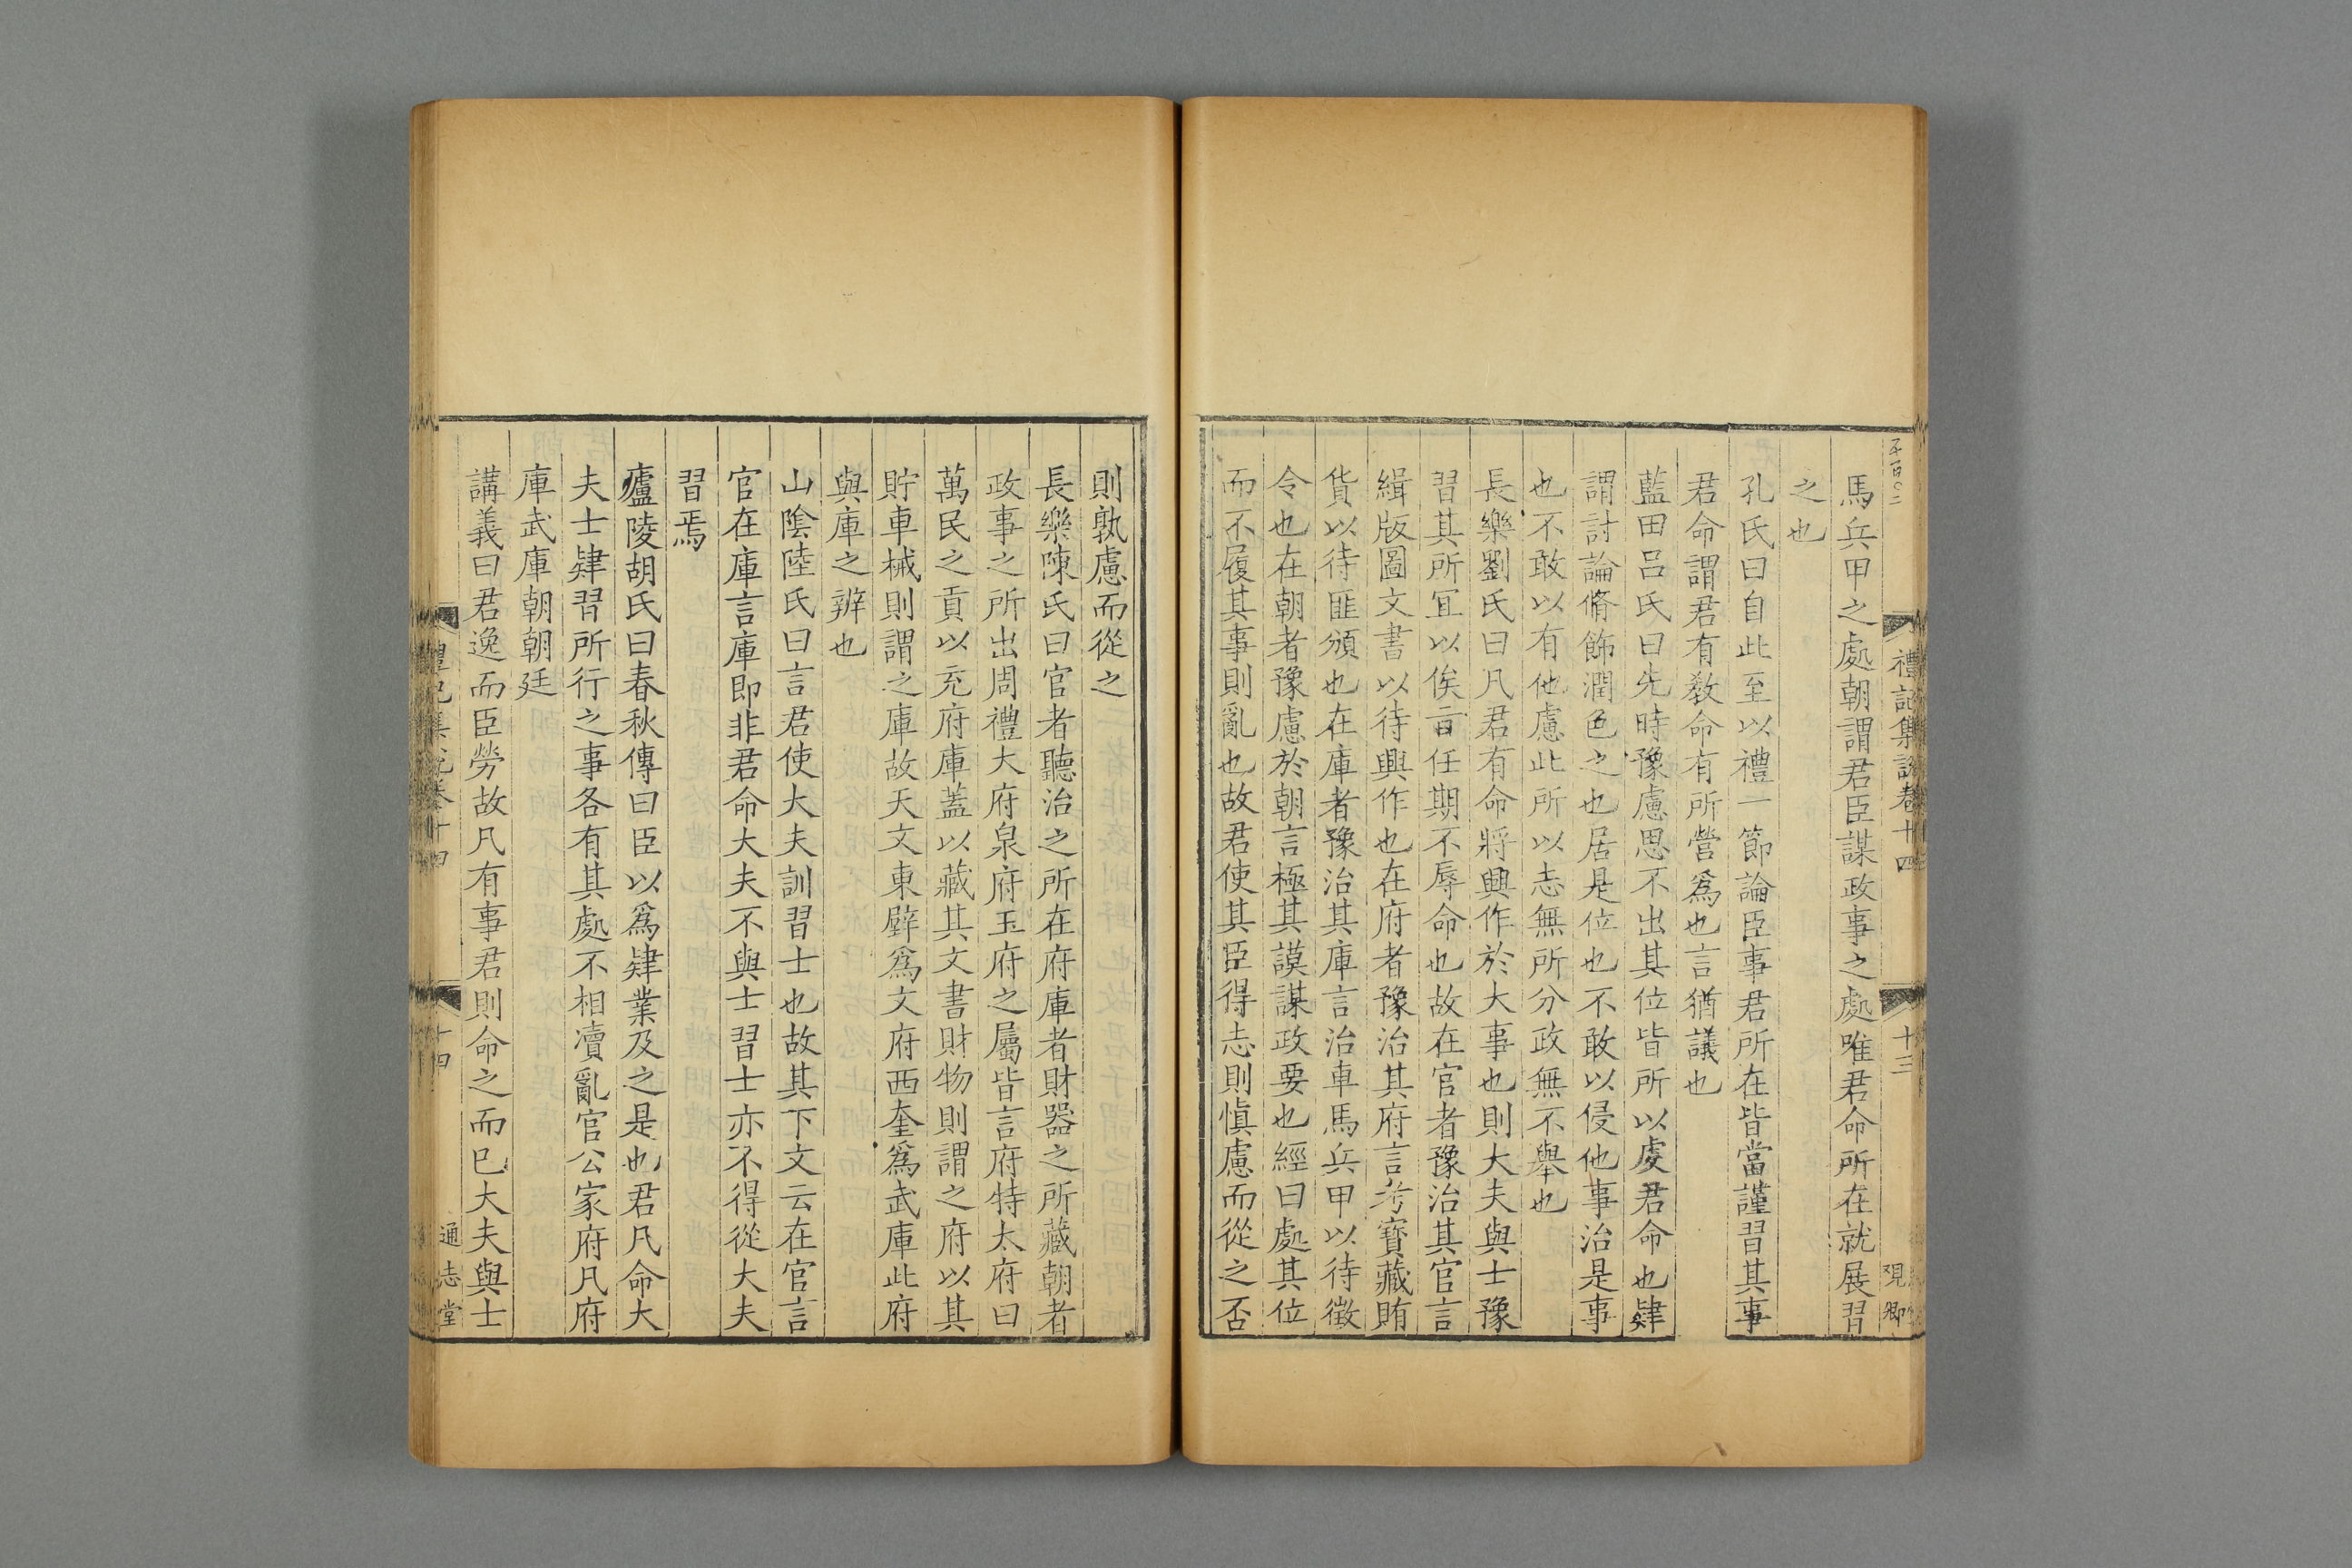 禮記集說卷十四
十三
馬兵甲之處朝謂君臣謀政事之處唯君命所在就展習
之也
孔氏曰自此至以禮一節論臣事君所在皆當謹習其事
君命謂君有敎命有所營爲也言猶議也
藍田呂氏曰先時豫慮思不出其位皆所以虔君命也肄
謂討論脩飾潤色之也居是位也不敢以侵他事治是事
也不敢以有他慮此所以志無所分政無不舉也
長樂劉氏曰凡君有命將興作於大事也則大夫與士豫
習其所冝以俟言任期不辱命也故在官者豫治其官言
緝版圖文書以待興作也在府者豫治其府言考寶藏賄
貨以待匪頒也在庫者豫治其庫言治車馬兵甲以待徵
令也在朝者豫慮於朝言極其謨謀政要也經曰處其位
而不履其事則亂也故君使其臣得志則慎慮而從之否
則孰慮而從之
長樂陳氏曰官者聽治之所在府庫者財器之所藏朝者
政事之所出周禮大府泉府玉府之屬皆言府特太府曰
萬民之貢以充府庫蓋以藏其文書財物則謂之府以其
貯車械則謂之庫故天文東壁爲文府西奎爲武庫此府
與庫之辨也
山陰陸氏曰言君使大夫訓習士也故其下文云在官言
官在庫言庫即非君命大夫不與士習士亦不得從大夫
習焉
廬陵胡氏曰春秋傳曰臣以爲肄業及之是也君凡命大
夫士肄習所行之事各有其處不相瀆亂官公家府凡府
庫武庫朝朝廷
講義曰君逸而臣勞故凡有事君則命之而已大夫與士
禮記集說卷十四
十四
通志堂